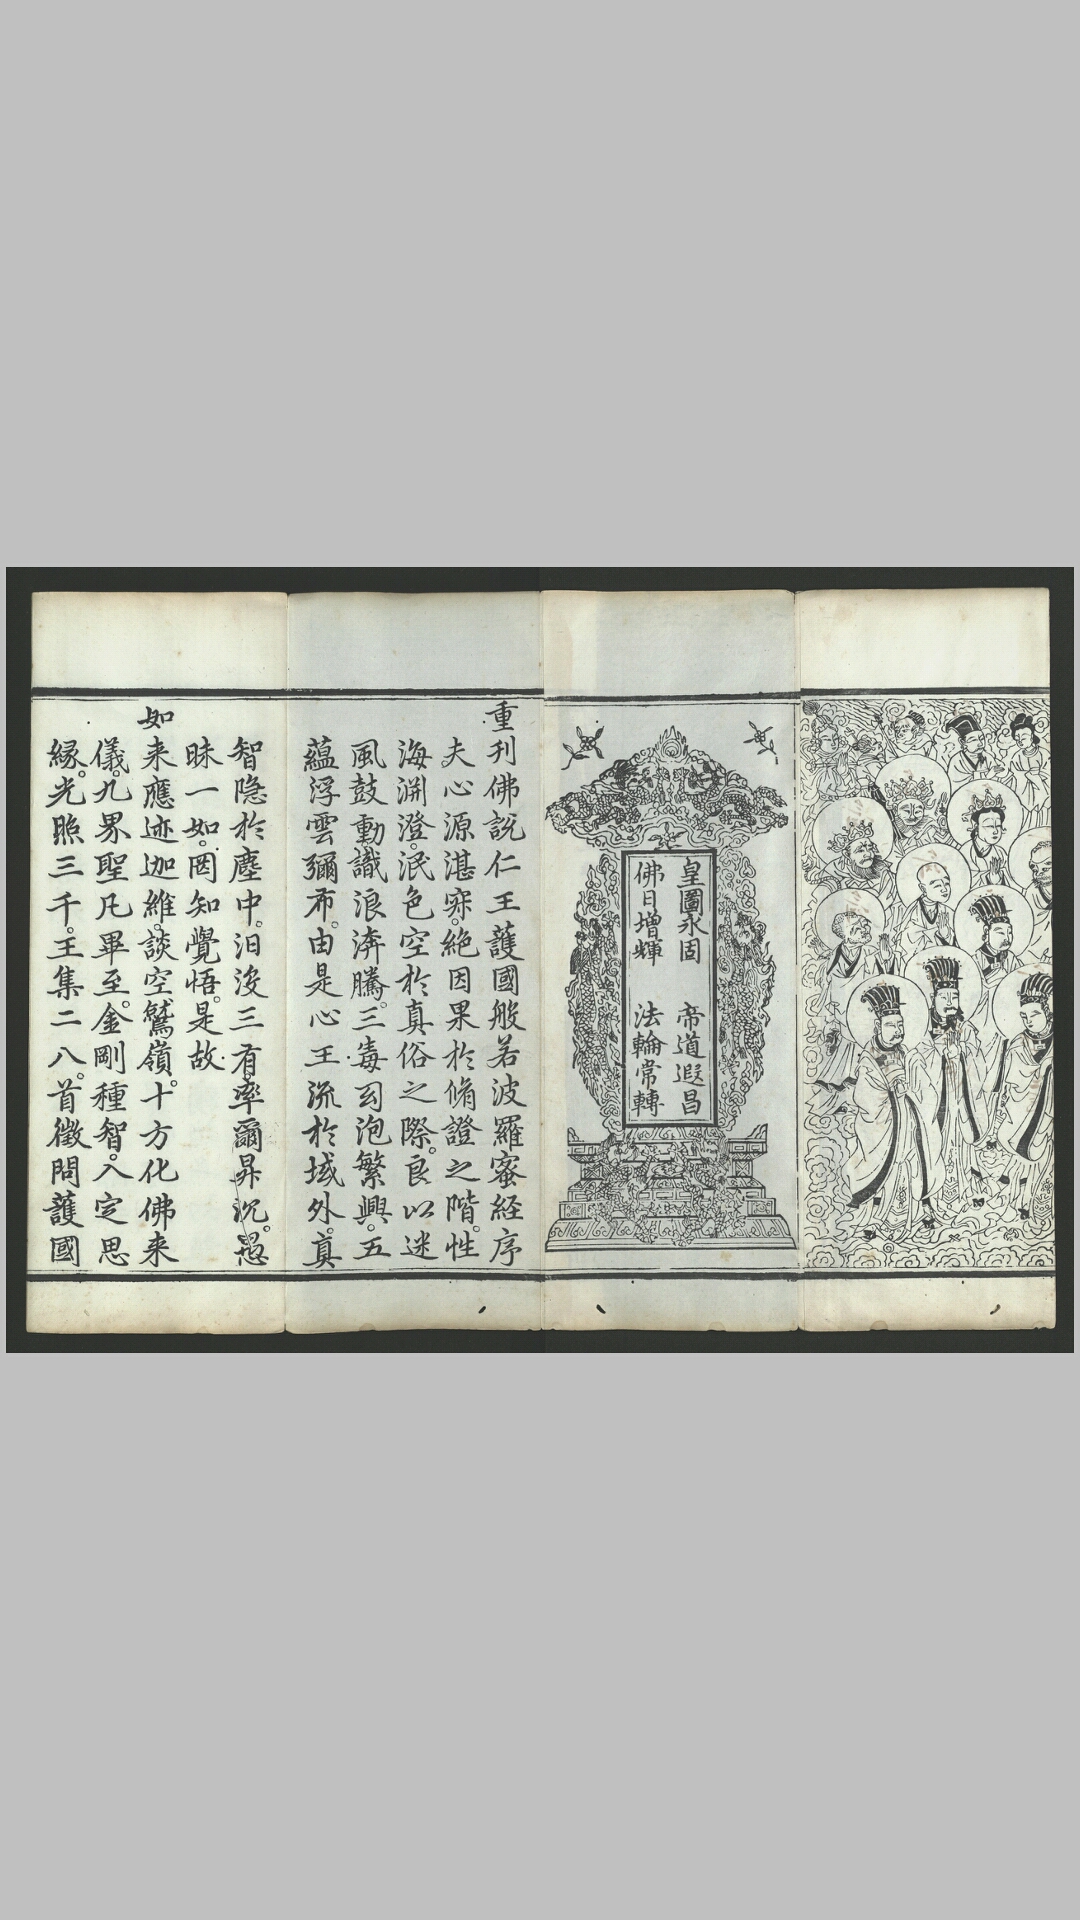 皇圖永固 帝道遐昌
佛日增輝 法輪常轉
重刊佛說仁王護國般若波羅蜜經序
夫心源湛寂。絕因果於脩證之階。性
海渊澄。泯色空於真俗之際。良以迷
風鼓動識浪渀騰。三毒幻泡繁興。五
蘊浮雲彌布。由是心王流於域外。真
智隱於塵中。汨没三有。率爾昇沉。愚
昧一如。罔知覺悟。是故
如来應迹迦維。談空鷲嶺。十方化佛来
儀。九界聖凡畢至。金剛種智。入定思
縁。光照三千。王集二八。首徵問護國